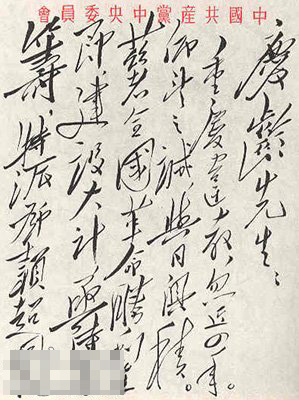 中國共産黨中央委員會
慶齡先生：
重慶違教，忽近四年。
仰望之誠，與日俱積。
茲者全國革命勝利在
即，建設大計，亟待
籌，特派鄧穎超同